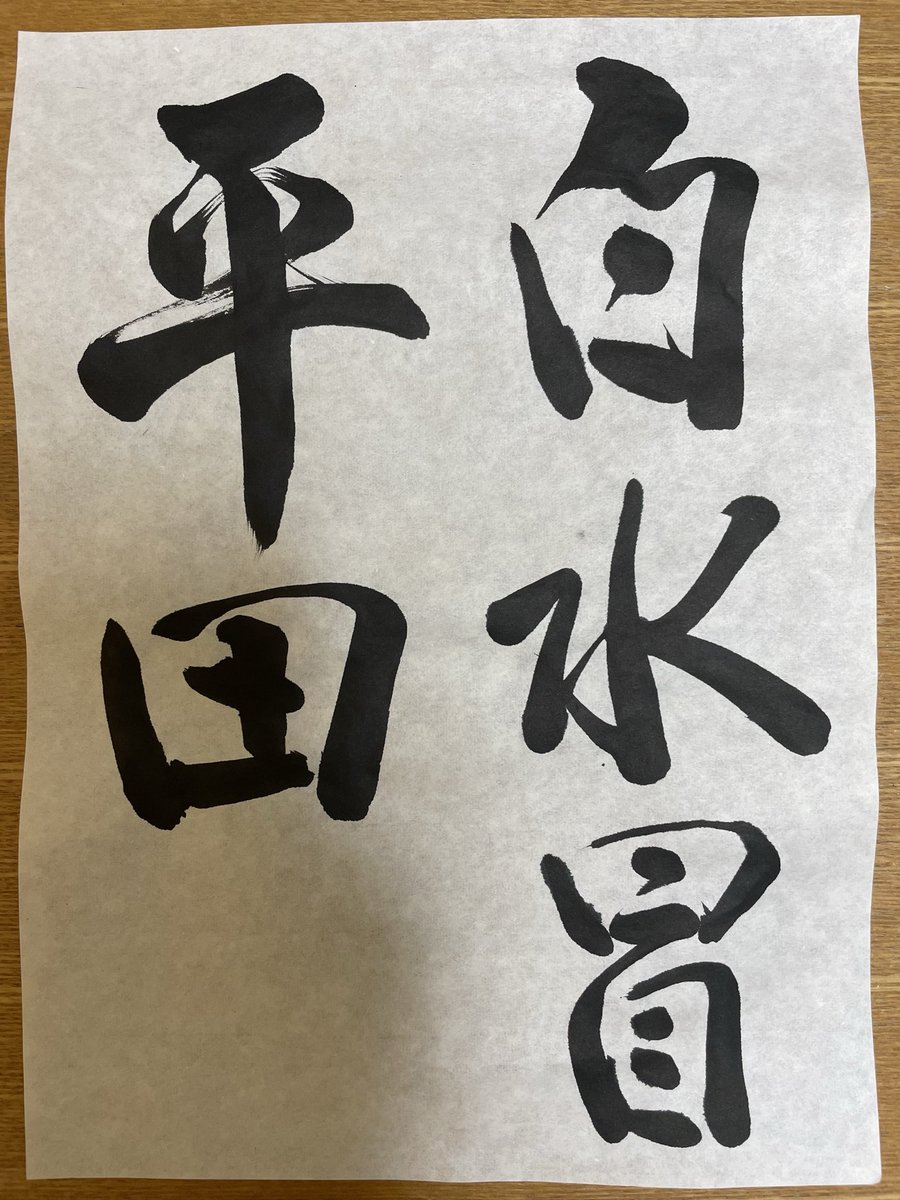 白水冒
平田